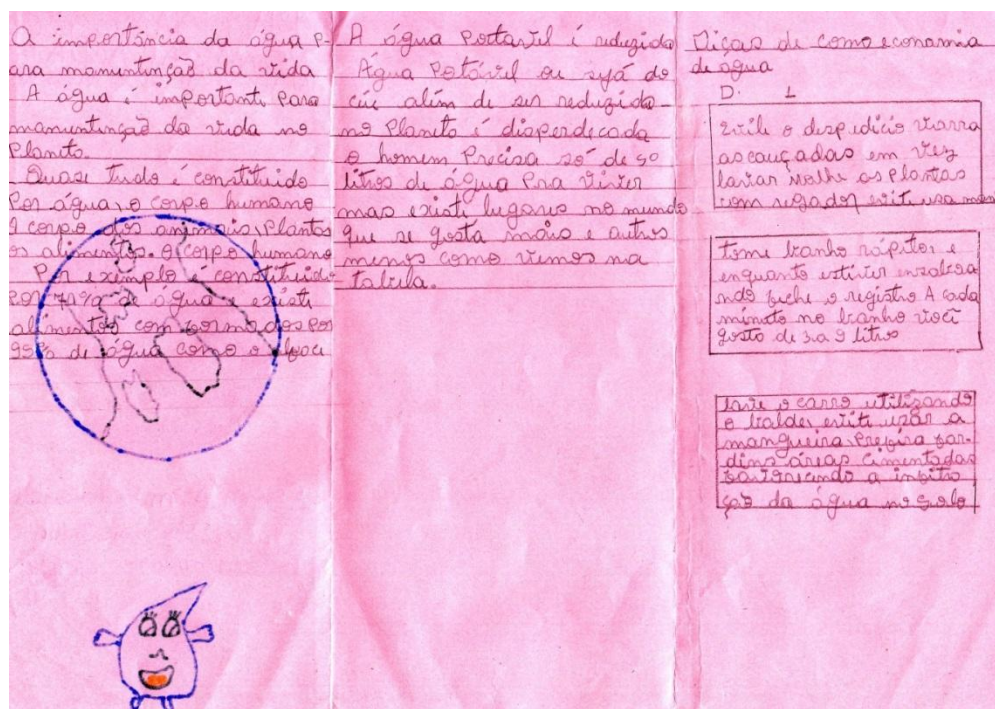 A importância da água p-
ara manuntinção da vida
A água é importante para
manuntinção da vida no
Planeto.
Quase tudo é constituido
Por água, o corpo humano
o corpo dos animais, plantas
os alimentos. o corpo humano
Por exemplo é constituido
por de água existe
alimentos com formados por
95% de água como o
A água Portavil é reduzida
Água Potável ou sejá do
ceu além de ser reduzida-
no Planeto é disperdeçada
o homem Precisa só de 50
litros de água Pra viver
mas existe lugares no mundo
que se gosta mais e outros
menos como vemos na
tabela.
Diças de como economia
de agua
D. L
Evite o despedicio varra
as cauçadas em vez
lavar molhe as plantas
com regador evite usa man
tome banho rápitor e
enquanto estiver ensaboa
ndo feche o registro A cada
minuto no banho você
gosto de 3 a 9 litros
lave o carro utilizando
o balde, evite usar a
mangueira, Prefira jar-
dins áreas cimentadas
favorecendo a infiltra
ção da água no solo